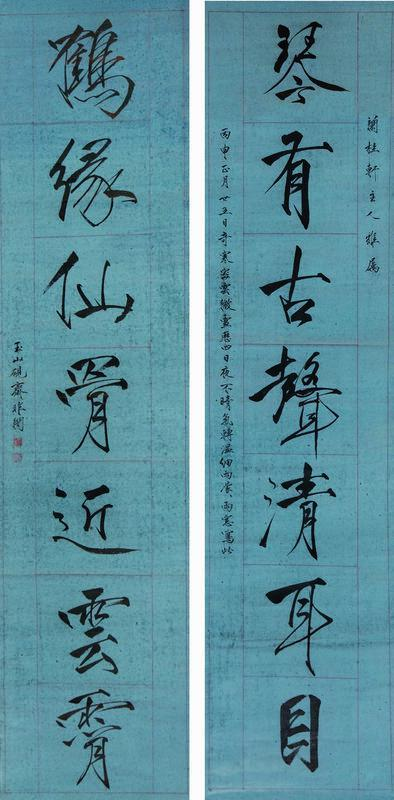 蘭桂軒主人雅屬
琴有古聲清耳目
丙申正月廿五日奇寒密雲微雪歷四日夜不晴氣轉溫細雨雨窓寫此
鶴緣仙骨近雲霄
玉山硯齋非闇